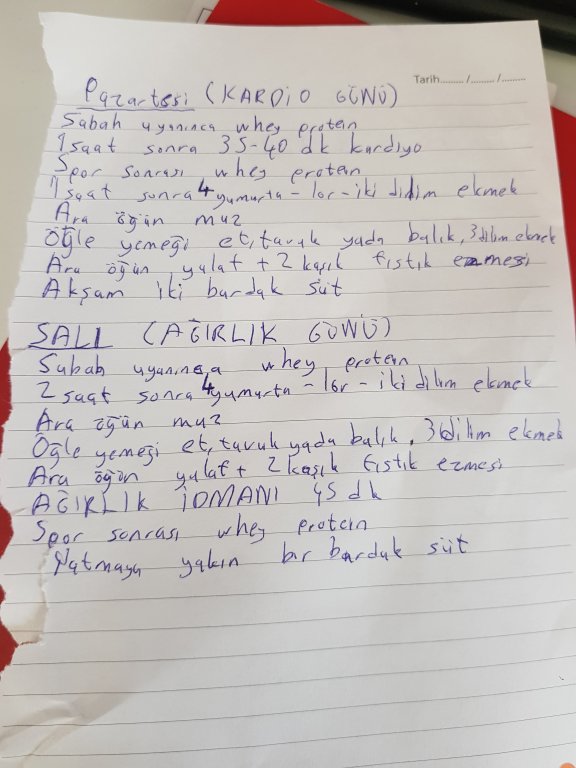 Tarih......... /......... /.........
Pazartesi (KARDİO GÜNÜ)
Sabah uyanınca whey protein
1 saat sonra 35-40 dk kardiyo
Spor sonrası whey protein
1 saat sonra 4 yumurta - lor - iki dilim ekmek
Ara öğün muz
Öğle yemeği et, tavuk yada balık, 3 dilim ekmek
Ara öğün yulaf + 2 kaşık fıstık ezmesi
Akşam iki bardak süt
SALI (AĞIRLIK GÜNÜ)
Sabah uyanınca whey protein
2 saat sonra 4 yumurta - lor - iki dilim ekmek
Ara öğün muz
Öğle yemeği et, tavuk yada balık, 3 dilim ekmek
Ara öğün yulaf + 2 kaşık fıstık ezmesi
AĞIRLIK İDMANI 45 dk
Spor sonrası whey protein
Yatmaya yakın bir bardak süt